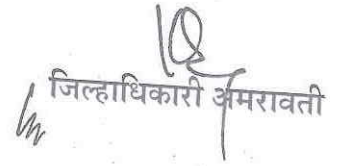 जिल्हाधिकारी अमरावती